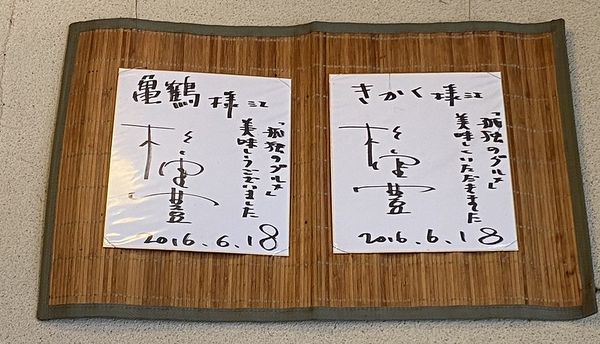 亀鶴様江
「孤独のグルメ」
美味しうございました
松重豊
2016.6.18
きかく様江
「孤独のグルメ」
美味しくいただきました
松重豊
2016.6.18